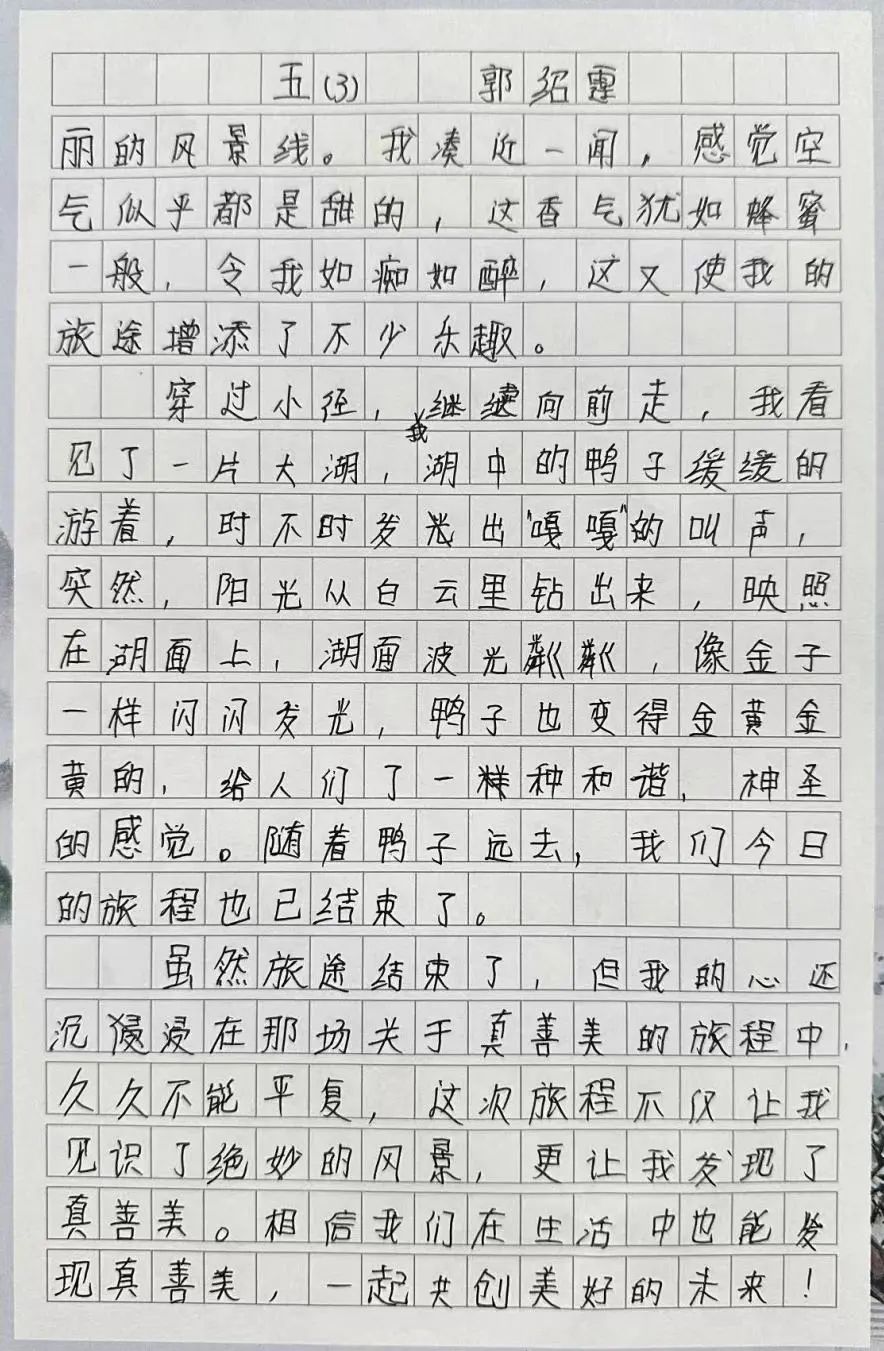 五(3) 郭绍霆
丽的风景线。我凑近一闻，感觉空
气似乎都是甜的，这香气犹如蜂蜜
一般，令我如痴如醉，这又使我的
旅途增添了不少乐趣。
穿过小径，我继续向前走，我看
见了一片大湖，湖中的鸭子缓缓的
游着，时不时发出“嘎嘎”的叫声，
突然，阳光从白云里钻出来，映照
在湖面上，湖面波光粼粼，像金子
一样闪闪发光，鸭子也变得金黄金
黄的，给人们了一种和谐、神圣
的感觉。随着鸭子远去，我们今日
的旅程也已结束了。
虽然旅途结束了，但我的心还
沉浸在那场关于真善美的旅程中，
久久不能平复，这次旅程不仅让我
见识了绝妙的风景，更让我发现了
真善美。相信我们在生活中也能发
现真善美，一起共创美好的未来！